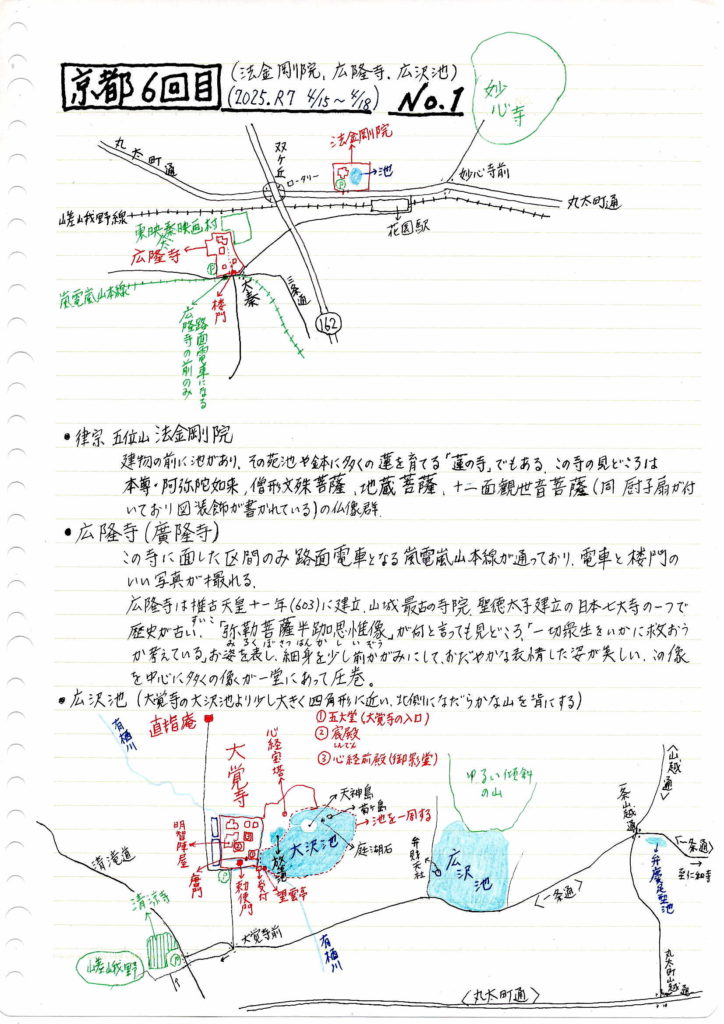 京都6回目
(法金剛院、広隆寺、広沢池)
(2025.R7 4/15～4/18)
No.1
妙心寺
丸太町通
双ケ丘
ロータリー
法金剛院
池
P
妙心寺前
丸太町通
嵯峨野線
花園駅
東映太秦映画村
広隆寺
P
太秦
三条通
嵐電嵐山本線
楼門
路面電車になる
広隆寺の前のみ
162
•律宗 五位山 法金剛院
建物の前に池があり、その苑池や鉢に多くの蓮を育てる「蓮の寺」でもある。この寺の見どころは
本尊・阿弥陀如来、僧形文殊菩薩、地蔵菩薩、十二面観世音菩薩(同 厨子扇が付
いており図装飾が書かれている)の仏像群.
•広隆寺(廣隆寺)
この寺に面した区間のみ路面電車となる嵐電嵐山本線が通っており、電車と楼門の
いい写真が撮れる.
広隆寺は推古天皇十一年(603)に建立、山城最古の寺院、聖徳太子建立の日本七大寺の一つで
すいこ
歴史が古い.「弥勒菩薩半跏思惟像」が何と言っても見どころ、「一切衆生をいかに救おう
みろくぼさつはんかしいぞう
か考えている」お姿を表し、細身を少し前かがみにして、おだやかな表情した姿が美しい。この像
を中心に多くの像が一堂にあって圧巻。
•広沢池(大覚寺の大沢池より少し大きく四角形に近い、北側になだらかな山を背にする)
有栖川
直指庵
大覚寺
心経宝塔
①五大堂(大覚寺の入口)
②宸殿
しんでん
③心経前殿(御影堂)
天神島
菊ヶ島
池を一周する
大沢池
庭湖石
放生池
明智陣屋
唐門
勅使門
受付
望雲亭
P
ゆるい傾斜
の山
弁財天社
広沢池
<山越通>
一条山越通
<一条通>
至仁和寺
弁慶足型池
清滝道
清涼寺
P
嵯峨野
大覚寺前
有栖川
<一条通>
丸太町山越通
<丸太町通>